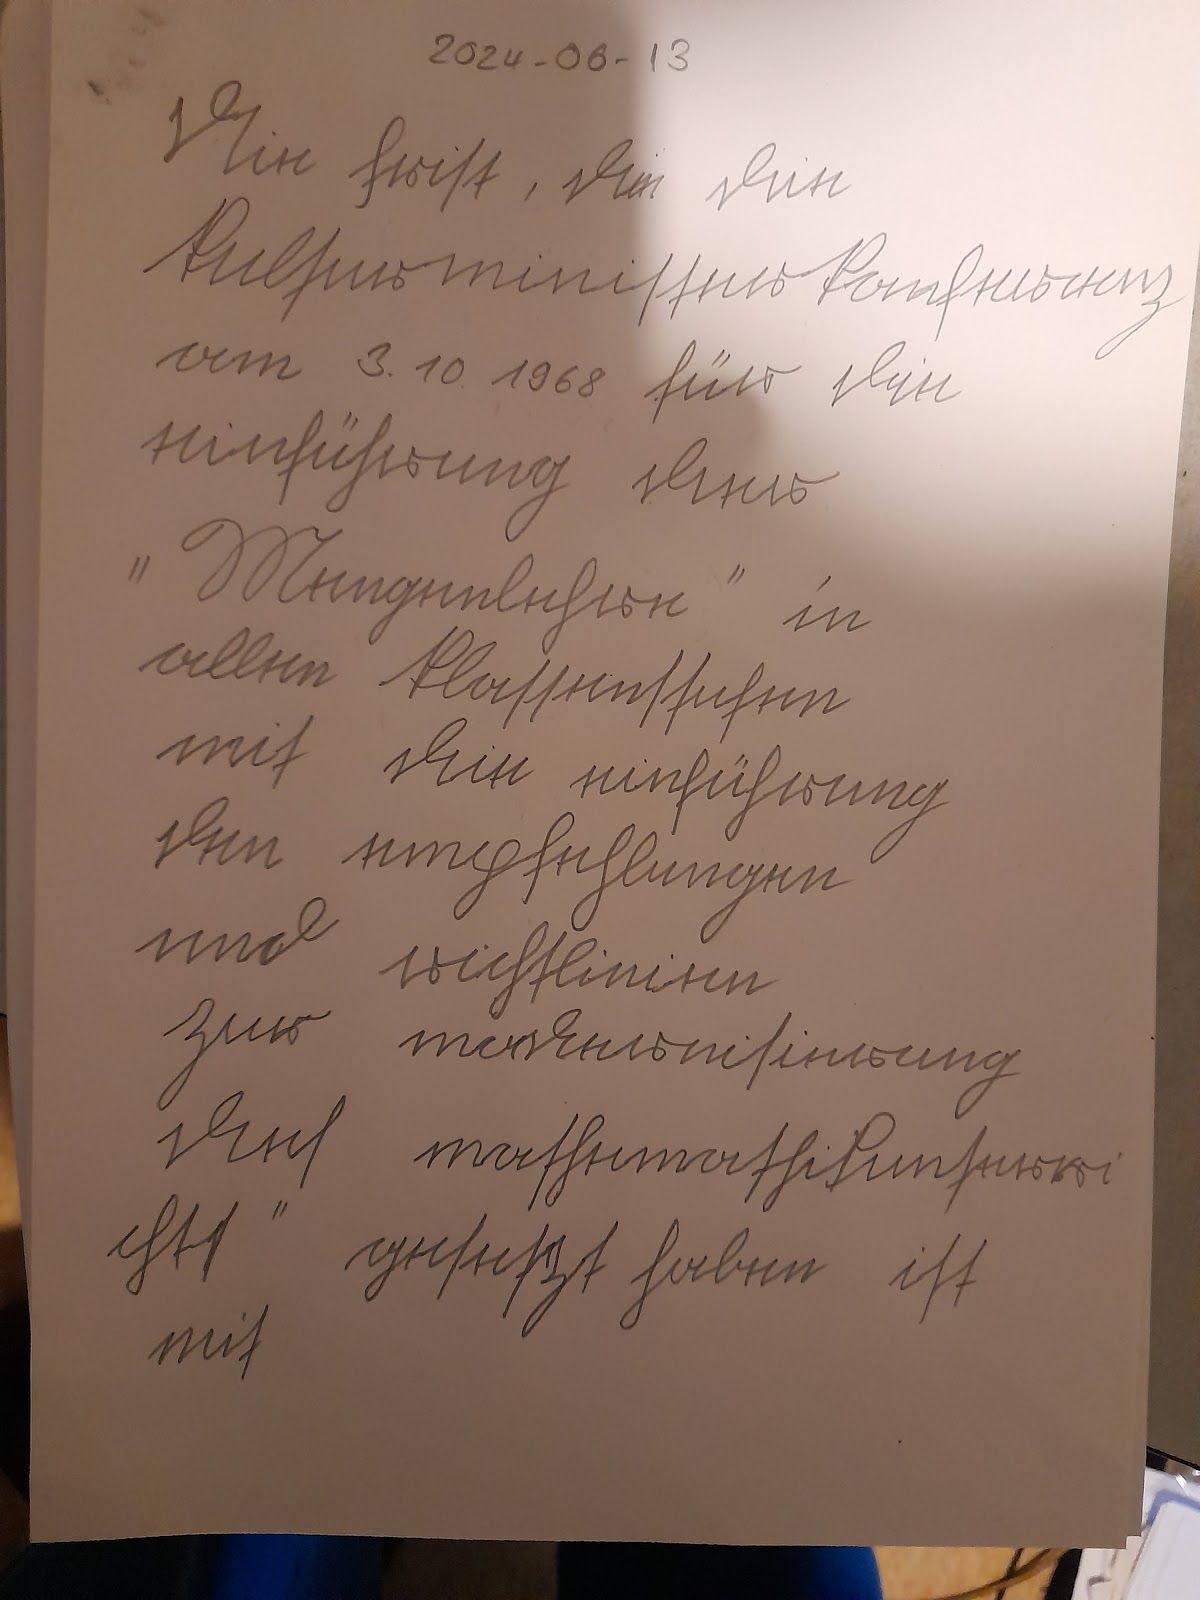 2024-06-13
Die frist, die die
Kultusministerkonferenz
am 3.10.1968 für die
einführung der
"Mengenlehre" in
allen klassenstufen
mit die einführung
den empfehlungen
und richtlinien
zur modernisierung
des mathemathikunterri
chts" gesetzt haben ist
mit